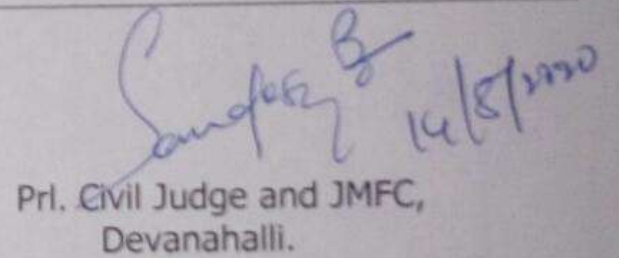 14/8/2020
Prl. Civil Judge and JMFC,
Devanahalli.